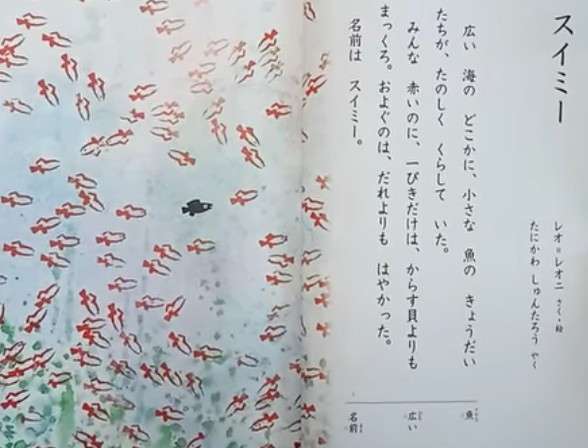 スイミー
レオ=レオニ さく・絵
たにかわ しゅんたろう やく
広い 海の どこかに、小さな 魚の きょうだい
たちが、たのしく くらして いた。
みんな 赤いのに、一ぴきだけは、からす貝よりも
まっくろ。およぐのは、だれよりも はやかった。
名前は スイミー。
魚
広い
名前